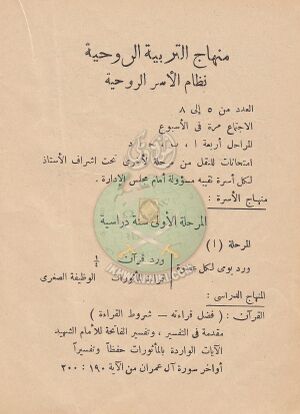 منهاج التربية الروحية
نظام الأسر الروحية
العدد من ٥ إلى ٨
الاجتماع مرة فى الأسبوع
المراحل أربعة ا ، ب ، ج ، د
امتحانات للنقل من مرحلة لأخرى تحت اشراف الأستاذ
لكل أسرة نقيبه مسؤولة أمام مجلس الادارة .
منهاج الأسرة :
المرحلة الأولى سنة دراسية
المرحلة (١)
ورد يومى لكل عضو ورد قرآن ¼
المأثورات الوظيفة الصغرى
المنهاج الدراسى :
القرآن : ( فضل قراءته — شروط القراءة )
مقدمة فى التفسير ، وتفسير الفاتحة للأمام الشهيد
الآيات الواردة بالمأثورات حفظاً وتفسيراً
أواخر سورة آل عمران من الآية ١٩٠ : ٢٠٠